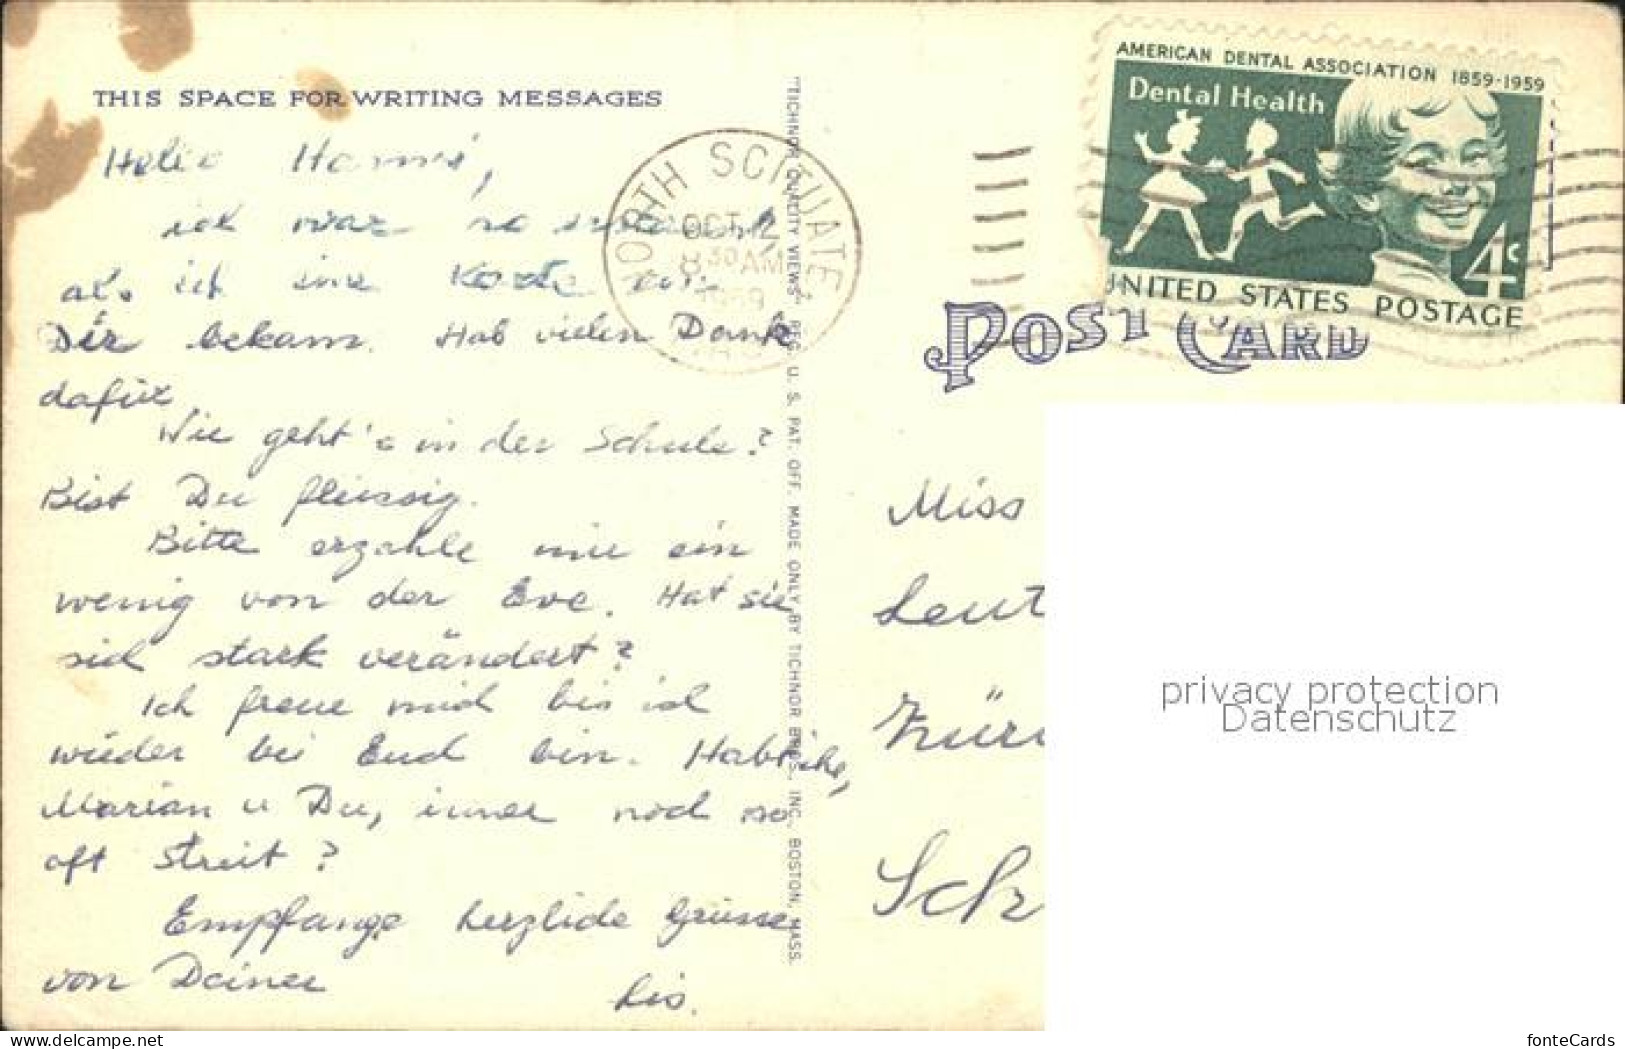 THIS SPACE FOR WRITING MESSAGES
ich war so
als ich eine Karte von
Dir bekam. Hab vielen Dank
dafür.
Wie geht's in der Schule?
Bist Du fleissig.
Bitte erzahle mir ein
wenig von der Eve. Hat sie
sich stark verändert?
Ich freue mich bis ich
wieder bei Euch bin. Habt ihr,
Marian u Du, immer noch so
oft Streit?
Empfange herzliche Grüsse
von Deiner
Lis.
"TICHNOR QUALITY VIEWS," REG. U. S. PAT. OFF. MADE ONLY BY TICHNOR BROS., INC., BOSTON, MASS.
NORTH SCITUATE
OCT 12
8 30 AM
1959
AMERICAN DENTAL ASSOCIATION 1859-1959
Dental Health
4c
UNITED STATES POSTAGE
POST CARD
Miss
Leut
Züri
Sch
privacy protection
Datenschutz
www.delcampe.net
fonteCards